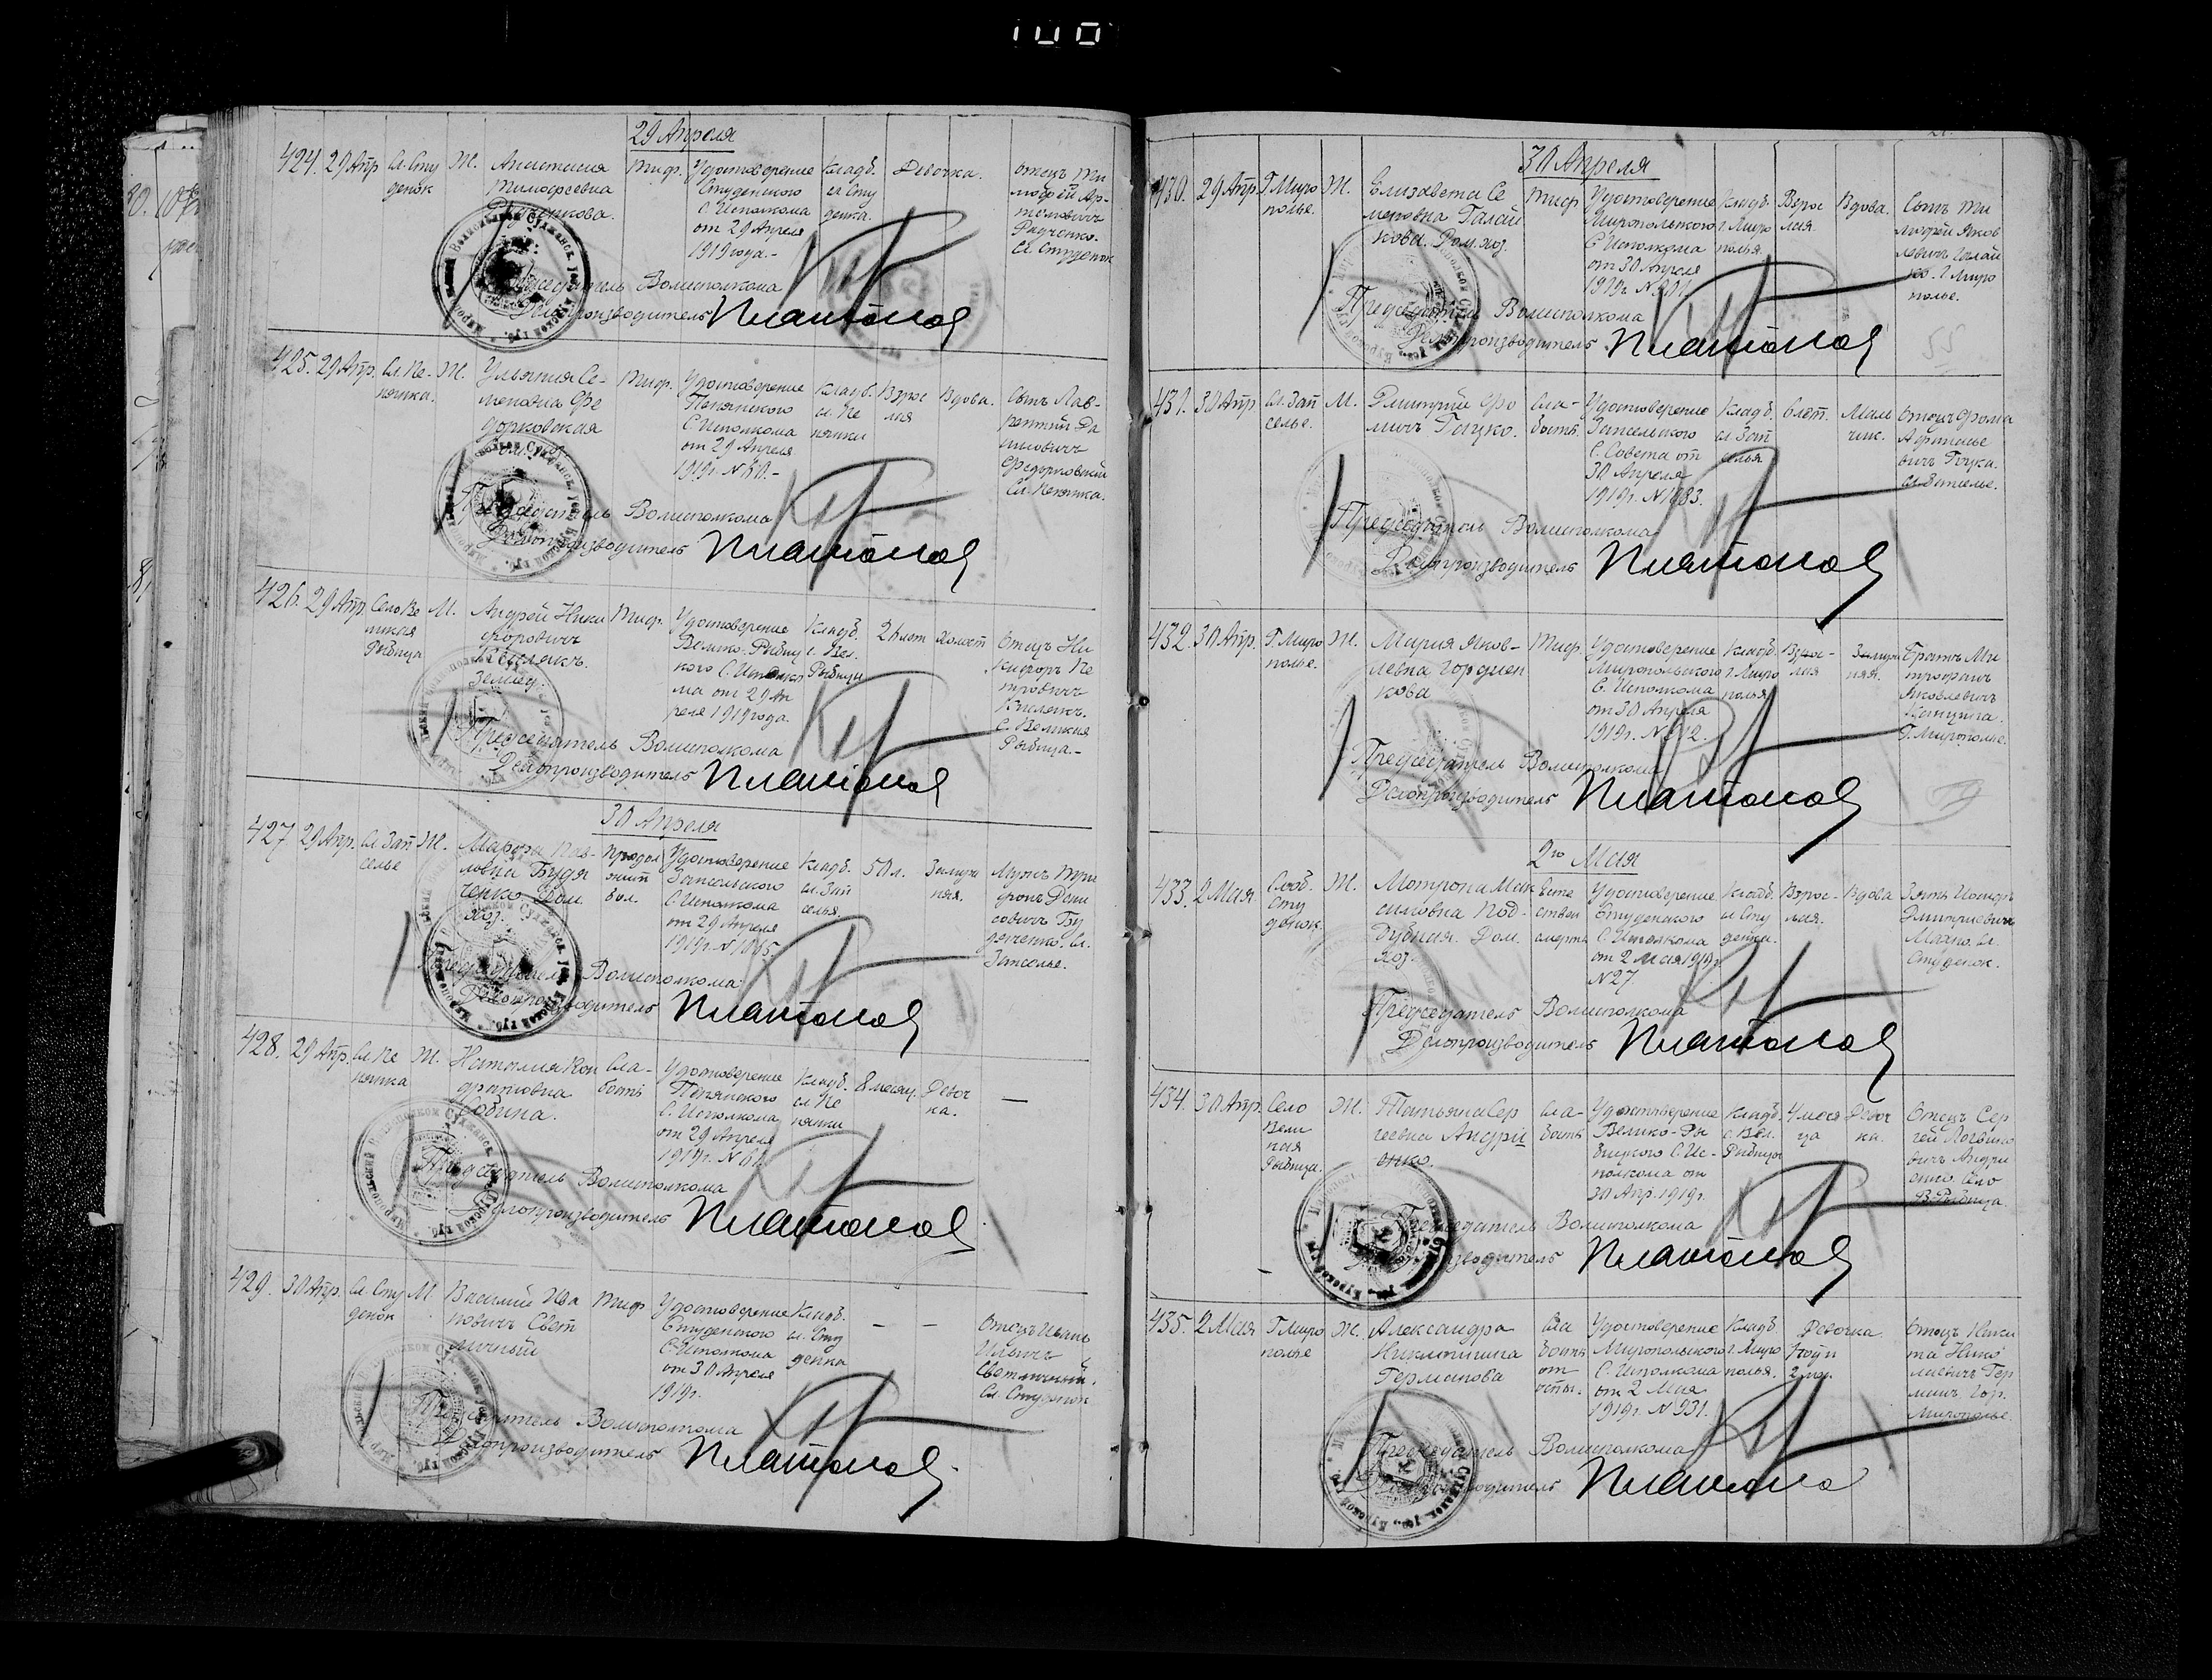 100
29 Апреля
424. 29 Апр. Сл. Сту
денок
Ж.
Анастасия
Тимофеевна
Радченкова.
Тиф.
Удостоверение
Студенского
С. Исполкома
от 29 Апреля
1919 года.-
Кладб.
сл. Сту
денка.
Девочка.
отец Ти
мофей Ар-
темовичъ
Радченко.
Сл. Студенок
Председатель Волисполкома
Делопроизводитель Платонов
425. 29 Апр. Сл. Пе-
нянка.
Ж.
Ульяния Се-
меновна Фе
дорковская
Тиф.
Удостоверение
Пенянского
С. Исполкома
от 29 Апреля
1919 г. N 60.-
Кладб.
сл. Пе
нянки
Взрос
лая
Вдова.
Сынъ Лав-
рентий Да
ниловичъ
Федорковский
Сл. Пенянка.
Председатель Волисполкома
Делопроизводитель Платонов
426. 29 Апр. Село Ве
ликая
Рыбица
М.
Андрей Ники
форовичъ
Кислякъ.
Землед.
Тиф.
Удостоверение
Велико-Рыбиц
кого С. Исполко
ма от 29 Ап
реля 1919 года.
Кладб.
с. Вел.
Рыбицы
холост
Отецъ Ни
кифоръ Пе
тровичъ
Кислякъ.
С. Великая
Рыбица.-
Председатель Волисполкома
Делопроизводитель Платонов
30 Апреля
427. 29 Апр. Сл. Зап
селье
Ж.
Марфа Пав-
ловна Будя
ченко Дом.
Хоз.
Продол
жит
бол.
Удостоверение
Запсельского
С. Исполкома
от 29 Апреля
1919 г. N 1085.
Кладб.
сл. Зап
селья.
50 л.
Замуж
няя.
Мужъ Три
фонъ Дени
совичъ Бу
дяченко. Сл.
Запселье.
Председатель Волисполкома
Делопроизводитель Платонов
428. 29 Апр. Сл. Пе
нянка
Ж.
Наталия Кон
дратовна
Собина.
Сла-
бость
Удостоверение
Пенянского
С. Исполкома
от 29 Апреля
1919 г. N 61.
Кладб.
сл. Пе
нянки
8 месяц.
Девоч
ка.
—
Председатель Волисполкома
Делопроизводитель Платонов
429. 30 Апр. Сл. Сту
денок
М.
Василий Ива
новичъ Свет
личный
Тиф
Удостоверение
Студенского
С. Исполкома
от 30 Апреля
1919 г.
Кладб.
сл. Сту
денка
— —
Отецъ Иванъ
Ильичъ
Светличный.
Сл. Студенок
Председатель Волисполкома
Делопроизводитель Платонов
30 Апреля
430. 29 Апр. Г. Миро
полье.
Ж.
Елизавета Се
меновна Галай
кова. Дом. хоз.
Тиф
Удостоверение
Миропольского
С. Исполкома
от 30 Апреля
1919 г.
Кладб.
г. Миро
полья.
Взрос
лая.
Вдова.
Сынъ Ти
мофей Яков
левичъ Галай
ко. Г. Миро
полье.
Председатель Волисполкома
Делопроизводитель Платонов
431. 30 Апр. Сл. Зап
селье.
М.
Дмитрий Фо
мичъ Гацко.
Сла-
бость
Удостоверение
Запсельского
С. Совета от
30 Апреля
1919 г. N 1083.
Кладб.
сл. Зап
селья
6 лет.
Маль
чик.
Отецъ Фома
Сл. Запселье.
Председатель Волисполкома
Делопроизводитель Платонов
432. 30 Апр. Г. Миро
полье.
Ж.
Мария Яков-
левна Гордиен
кова
Тиф.
Удостоверение
Миропольского
С. Исполкома
от 30 Апреля
1919 г.
Кладб.
г. Миро
полья
Взрос-
лая
Замуж
няя.
Братъ Ми
трофанъ
Яковлевичъ
Г. Мирополье.
Председатель Волисполкома
Делопроизводитель Платонов
2го Мая
433. 2 Мая Слоб.
Сту
денок.
Ж.
Мотрона Мак
симовна Под-
дубная. Дом.
хоз.
Есте
ствен
смерть
Удостоверение
Студенского
С. Исполкома
от 2 Мая 1919 г.
N 27.
Кладб.
сл. Сту
денка.
Взрос-
лая.
Вдова
Зять
Дмитриевичъ
Махно. Сл.
Студенок.
Председатель Волисполкома
Делопроизводитель Платонов
434. 30 Апр. Село
Вели
кая
Рыбица.
Ж.
Татьяна Сер
геевна Андри
енко.
Сла-
бость
Удостоверение
Велико-Ры
бицкого С. Ис-
полкома от
30 Апр. 1919 г.
Кладб.
с. Вел.
Рыбицы
4 меся
ца
Девоч
ка.
Отецъ Сер
гей Логвино
вичъ Андри
енко. Село
В. Рыбица.
Председатель Волисполкома
Делопроизводитель Платонов
435. 2 Мая Г. Миро
полье
Ж.
Александра
Никитична
Германова
Сла
бость
от
оспы.
Удостоверение
Миропольского
С. Исполкома
от 2 Мая
1919 г. N 931.
Кладб.
г. Миро
полья.
Девочка.
1 год и
2 мес.
Отецъ Ники
та Нико
лаевичъ Гер
манъ. Гор.
Мирополье.
Председатель Волисполкома
Делопроизводитель Платонов